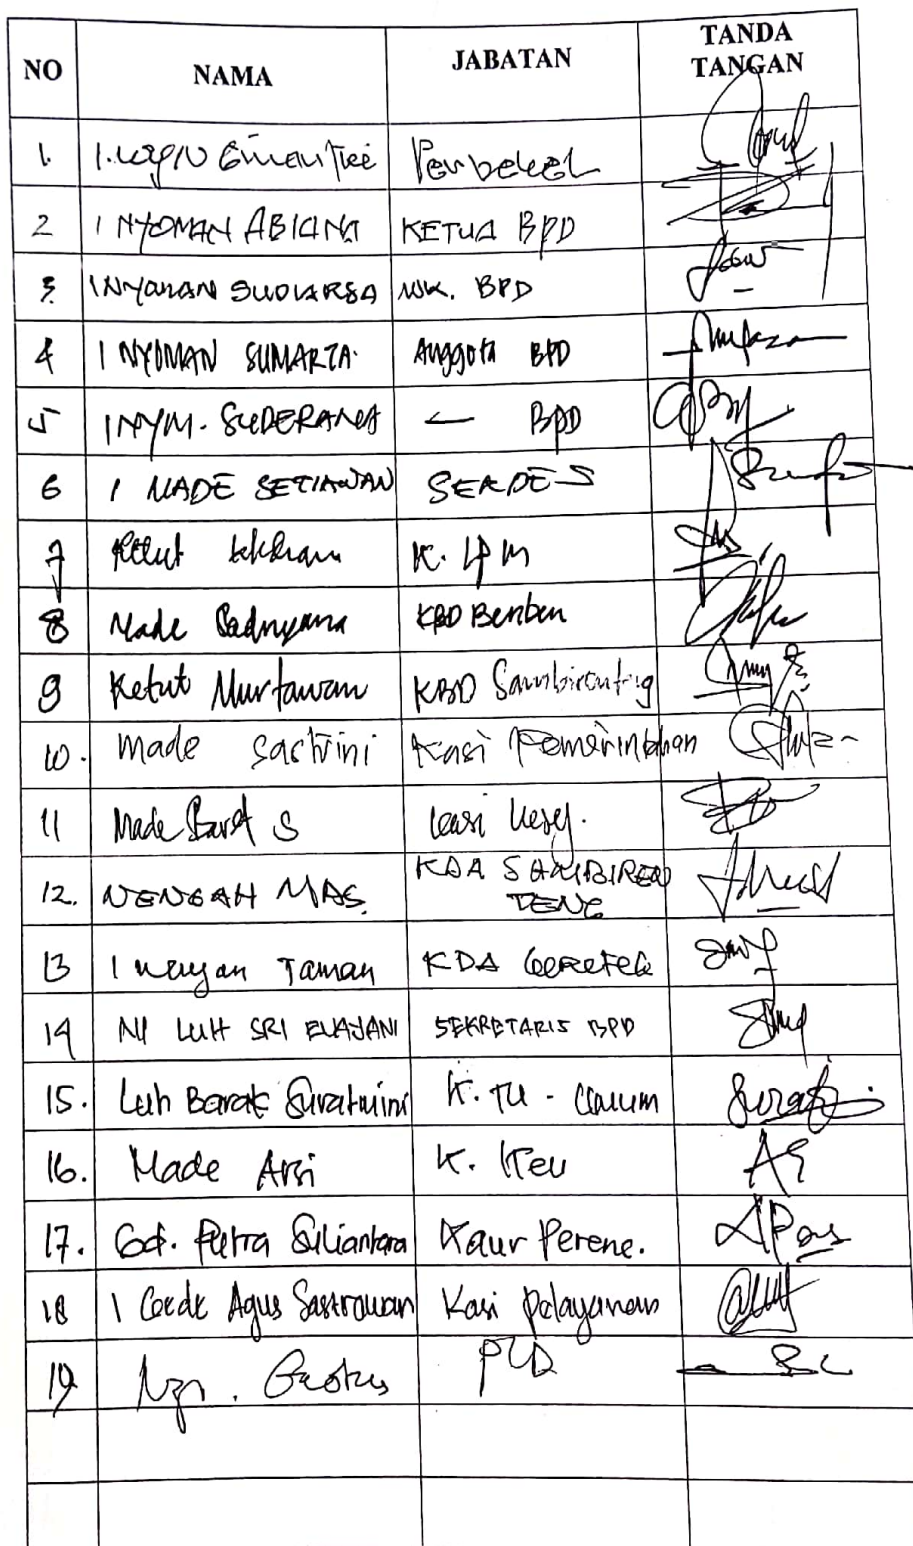 NO NAMA JABATAN TANDA TANGAN
1.
2 I NYOMAN ABIANA KETUA BPD
3. I NYOMAN SUDIARSA WK. BPD
4 I NYOMAN SUMARTA. Anggota BPD
5 I NYM. SUDERANA — BPD
6 I MADE SETIAWAN SEKDES
7 Ketut K. LPM
8 Made Sadnyana KBD Benben
9 Ketut Murtawan KBD Sambirenteng
10. Made Sastrini Kasi Pemerintahan
11 Made S Kasi Kesej.
12. NENGAH MAS. KDA SAMBIREN
TENG
13 I Wayan Taman KDA Geretek
14 NI LUH SRI SEKRETARIS BPD
15. Luh Barak Suratmini K. TU - Umum
16. Made Arsi K. Keu
17. Gd. Putra Siliantara Kaur Perenc.
18 I Gede Agus Sastrawan Kasi Pelayanan
19